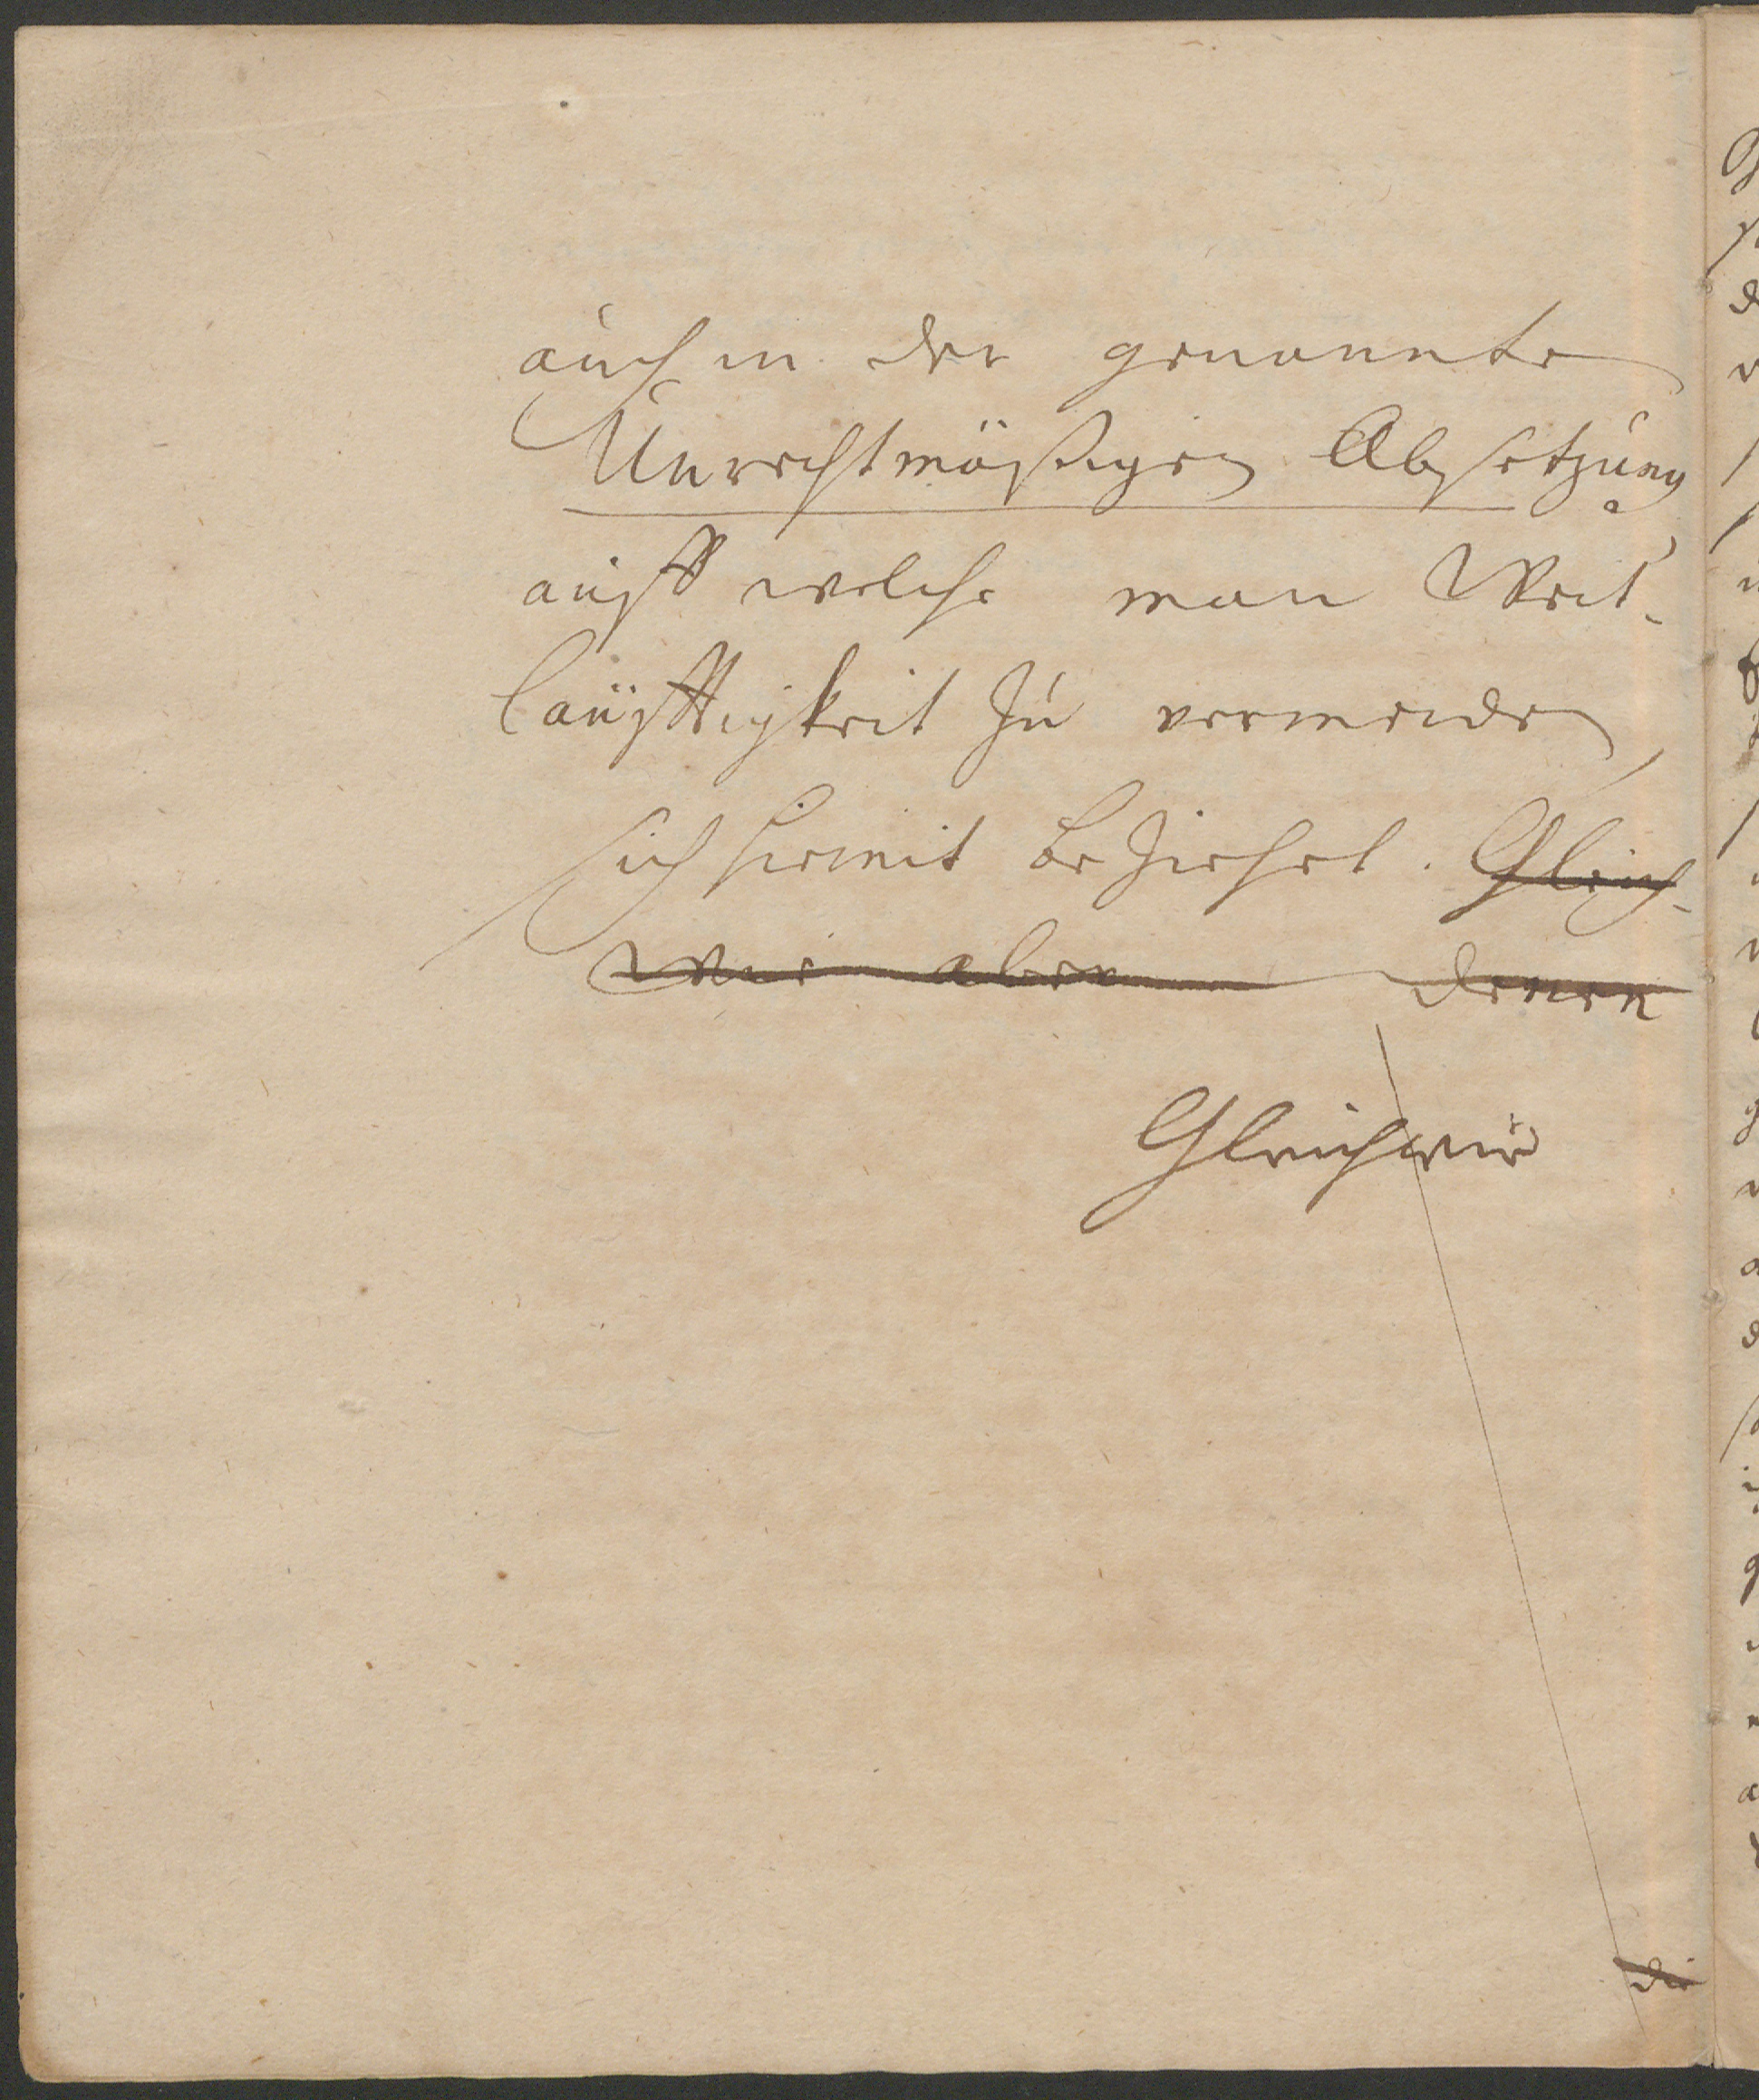 auch in der genannten
Unrechtmäßigen Absetzung
auff welche man Weit-
läufftigkeit zu vermeiden
sich hiermit beziehet. Gleich-
wie aber denen
Gleichwie
die